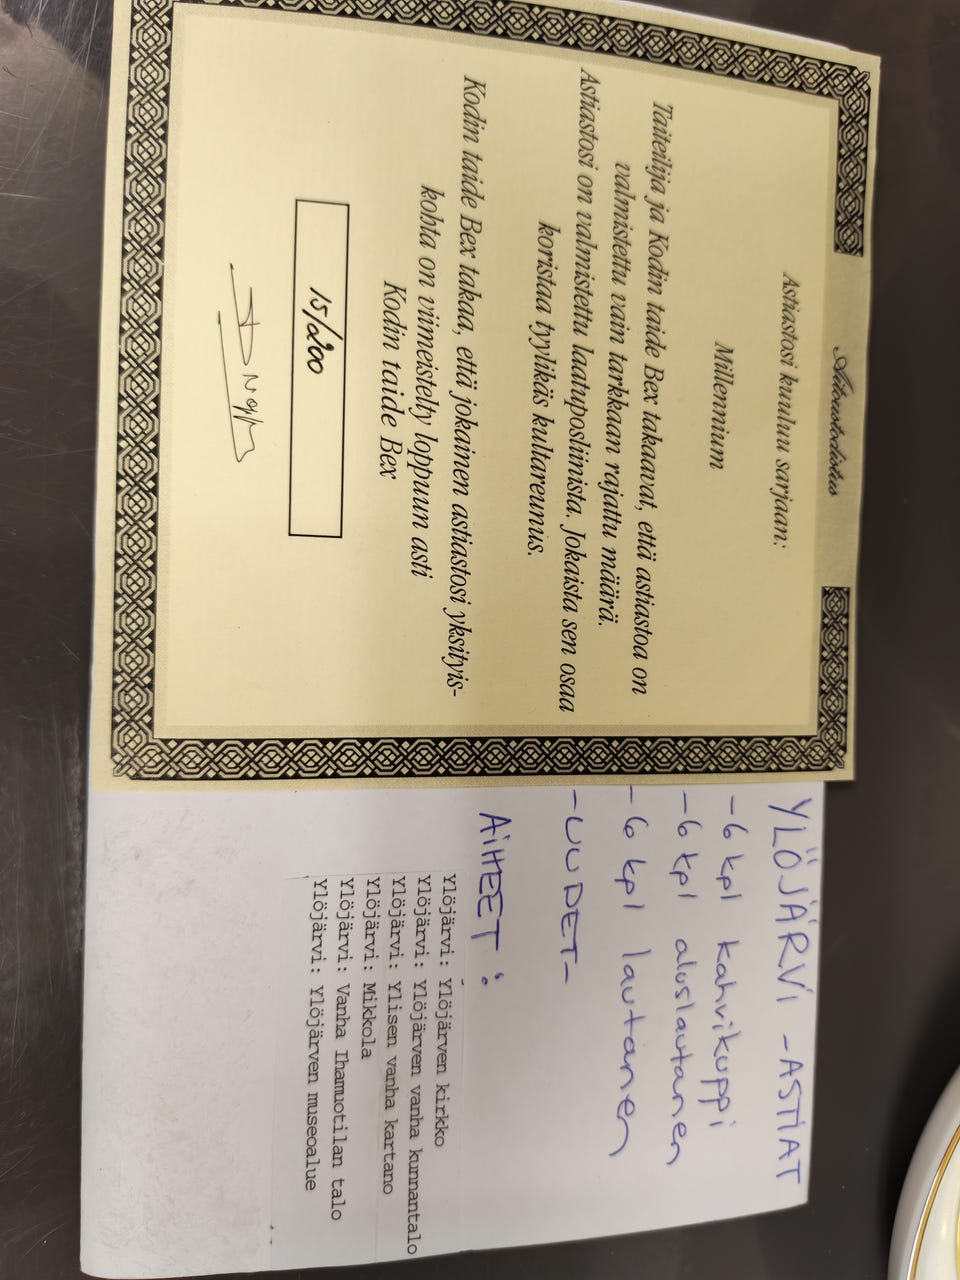 Aitoustodistus
Astiastosi kuuluu sarjaan:
Millennium
Taiteilija ja Kodin taide Bex takaavat, että astiastoa on
valmistettu vain tarkkaan rajattu määrä.
Astiastosi on valmistettu laatuposliinista. Jokaista sen osaa
koristaa tyylikäs kultareunus.
Kodin taide Bex takaa, että jokainen astiastosi yksityis-
kohta on viimeistelty loppuun asti
Kodin taide Bex
15/200
YLÖJÄRVI -ASTIAT
-6 kpl kahvikuppi
-6 kpl aluslautanen
-6 kpl lautanen
-UUDET-
AIHEET:
Ylöjärvi: Ylöjärven kirkko
Ylöjärvi: Ylöjärven vanha kunnantalo
Ylöjärvi: Ylisen vanha kartano
Ylöjärvi: Mikkola
Ylöjärvi: Vanha Ihamuotilan talo
Ylöjärvi: Ylöjärven museoalue